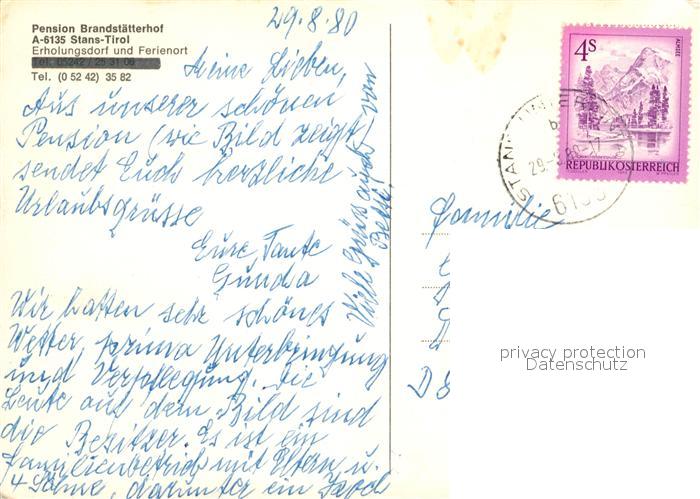 Pension Brandstätterhof
A-6135 Stans-Tirol
Erholungsdorf und Ferienort
Tel. 05242 / 25 31 08
Tel. (0 52 42) 35 82
29.8.80
Meine Lieben,
Aus unserer schönen
Pension (wie Bild zeigt)
sendet Euch herzliche
Urlaubsgrüsse
Eure Tante
Gunda
Wir hatten sehr schönes
Wetter, prima Unterbringung
und Verpflegung. Die
Leute auf dem Bild sind
die Besitzer. Es ist ein
Familienbetrieb mit Eltern u.
4 Söhne, darunter ein Koch
Viele Grüße auch von
4S
ALMSEE
REPUBLIK ÖSTERREICH
STANS
6135
Familie
privacy protection
Datenschutz